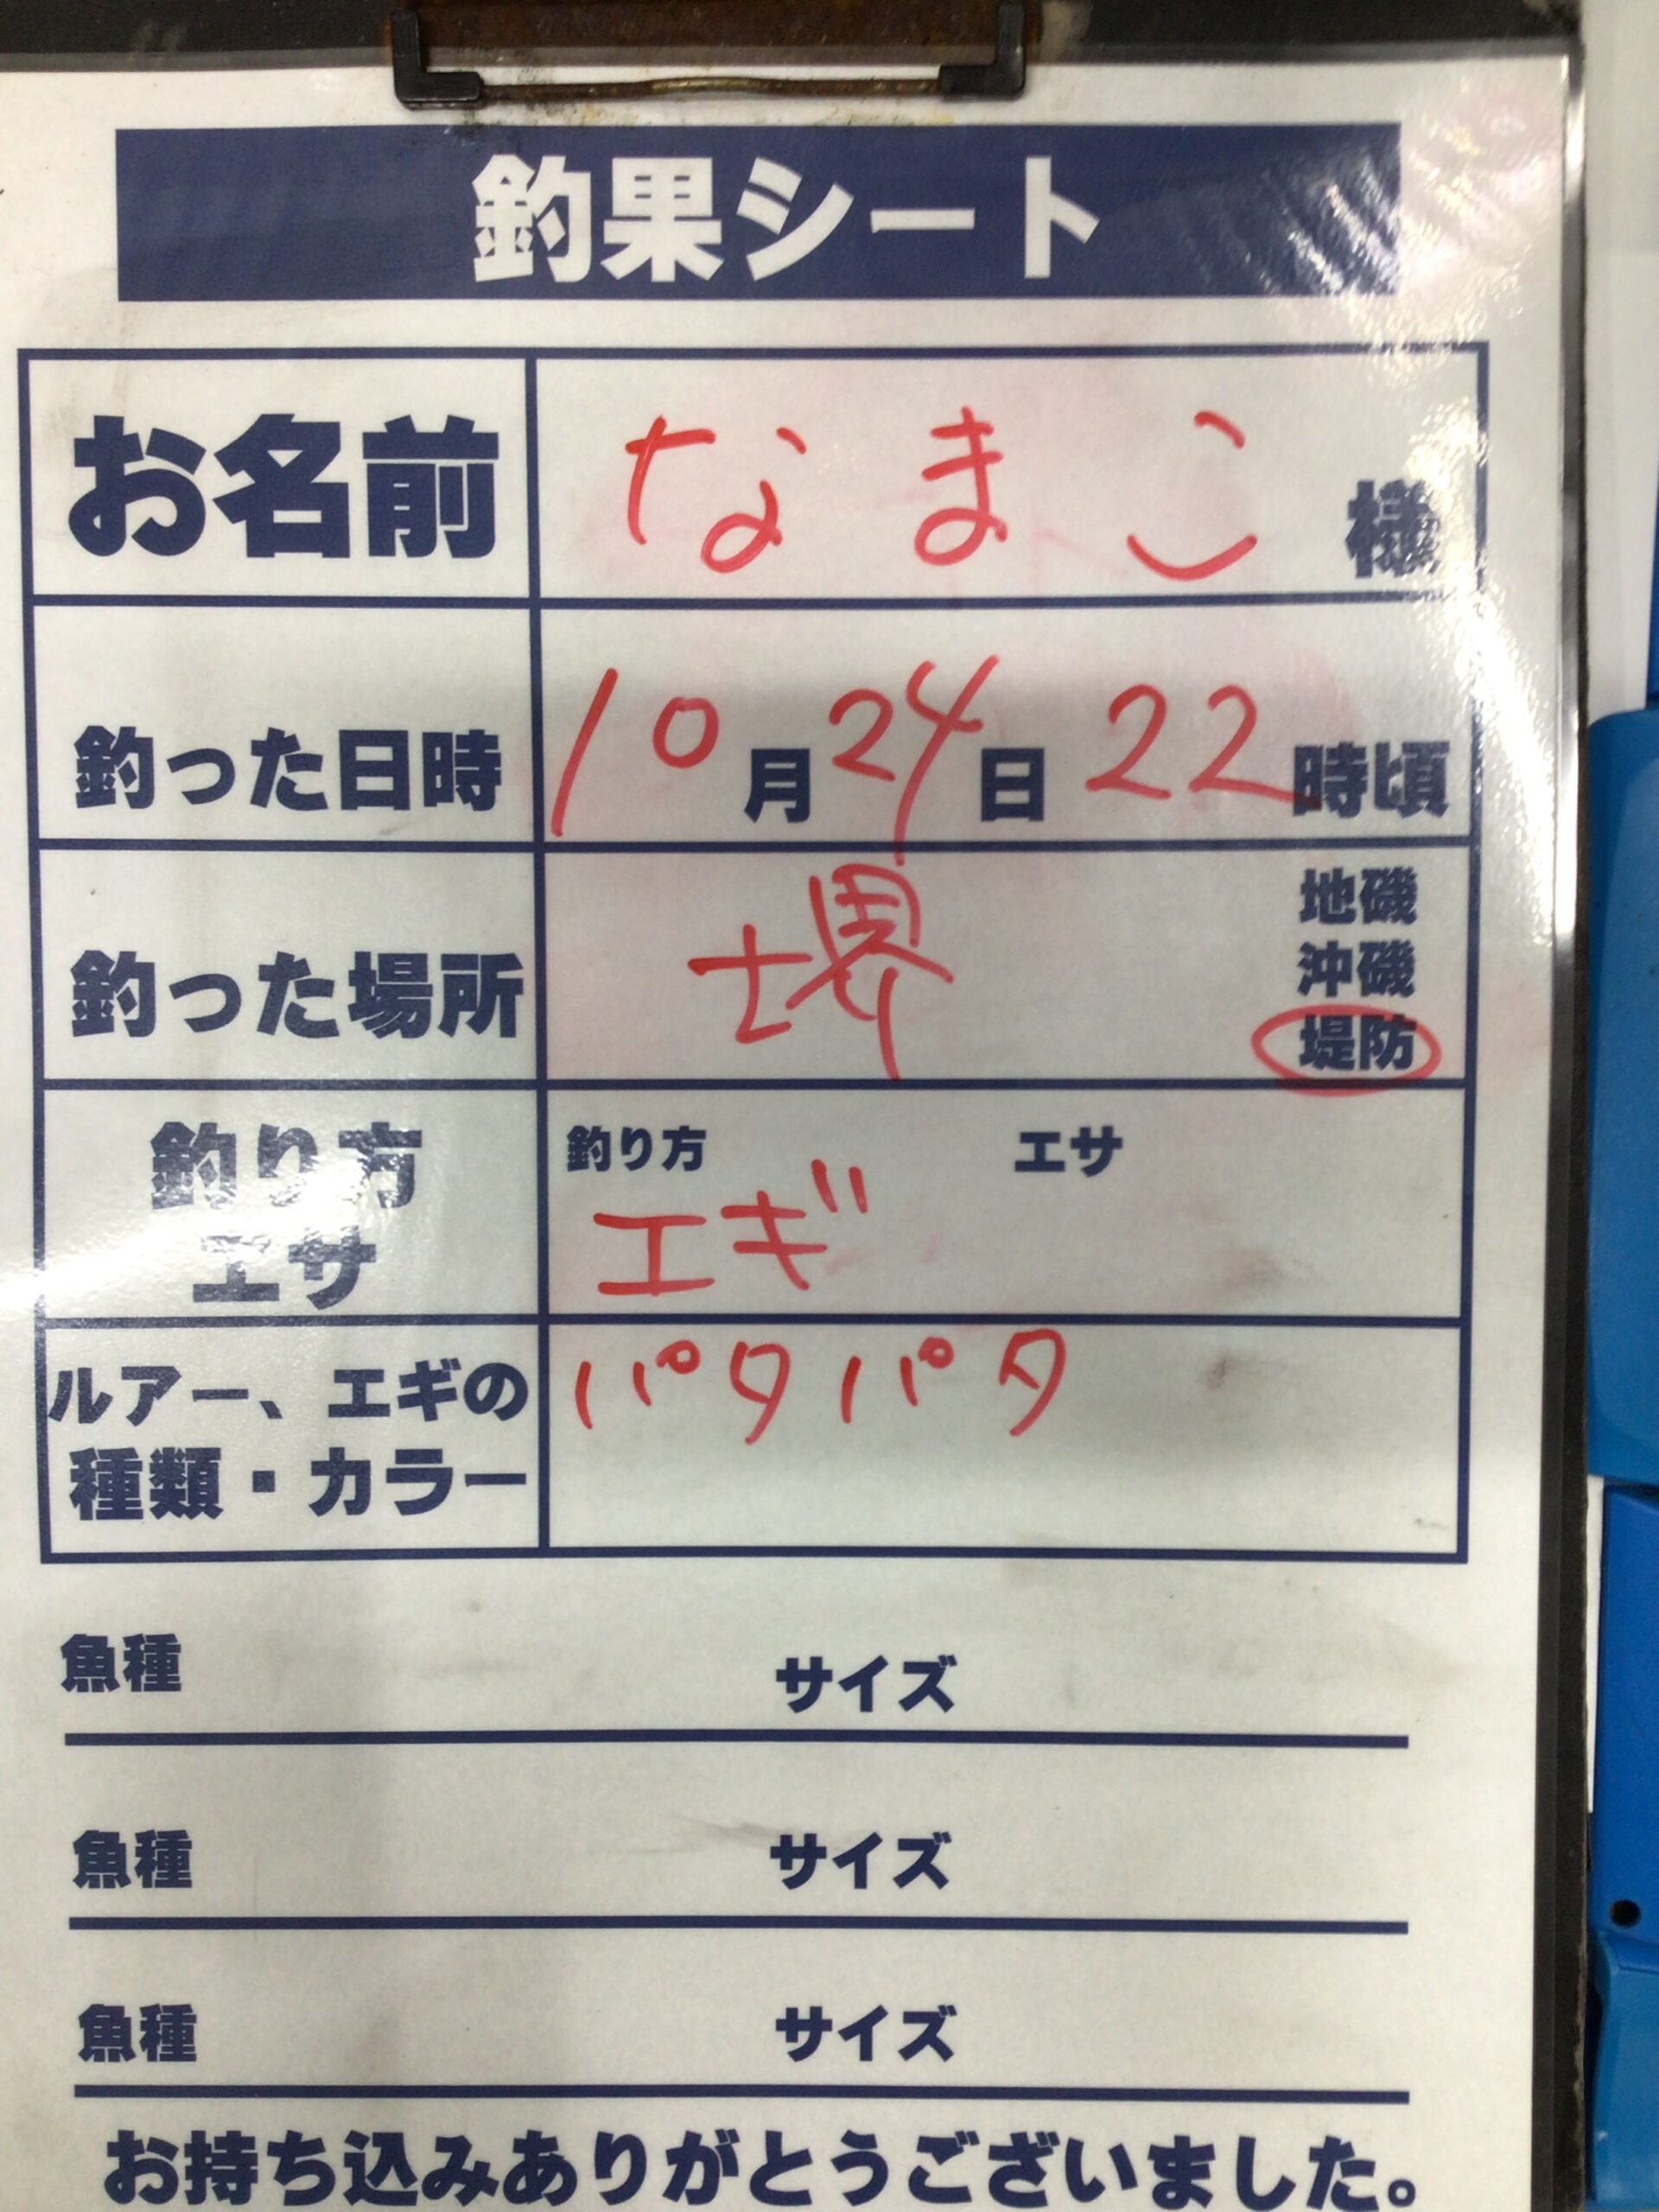 釣果シート
お名前 なまこ 様
釣った日時 10月24日22時頃
釣った場所 堺
地磯
沖磯
堤防
釣り方
エサ
釣り方 エサ
エギ
ルアー、エギの
種類・カラー
パタパタ
魚種 サイズ
魚種 サイズ
魚種 サイズ
お持ち込みありがとうございました。